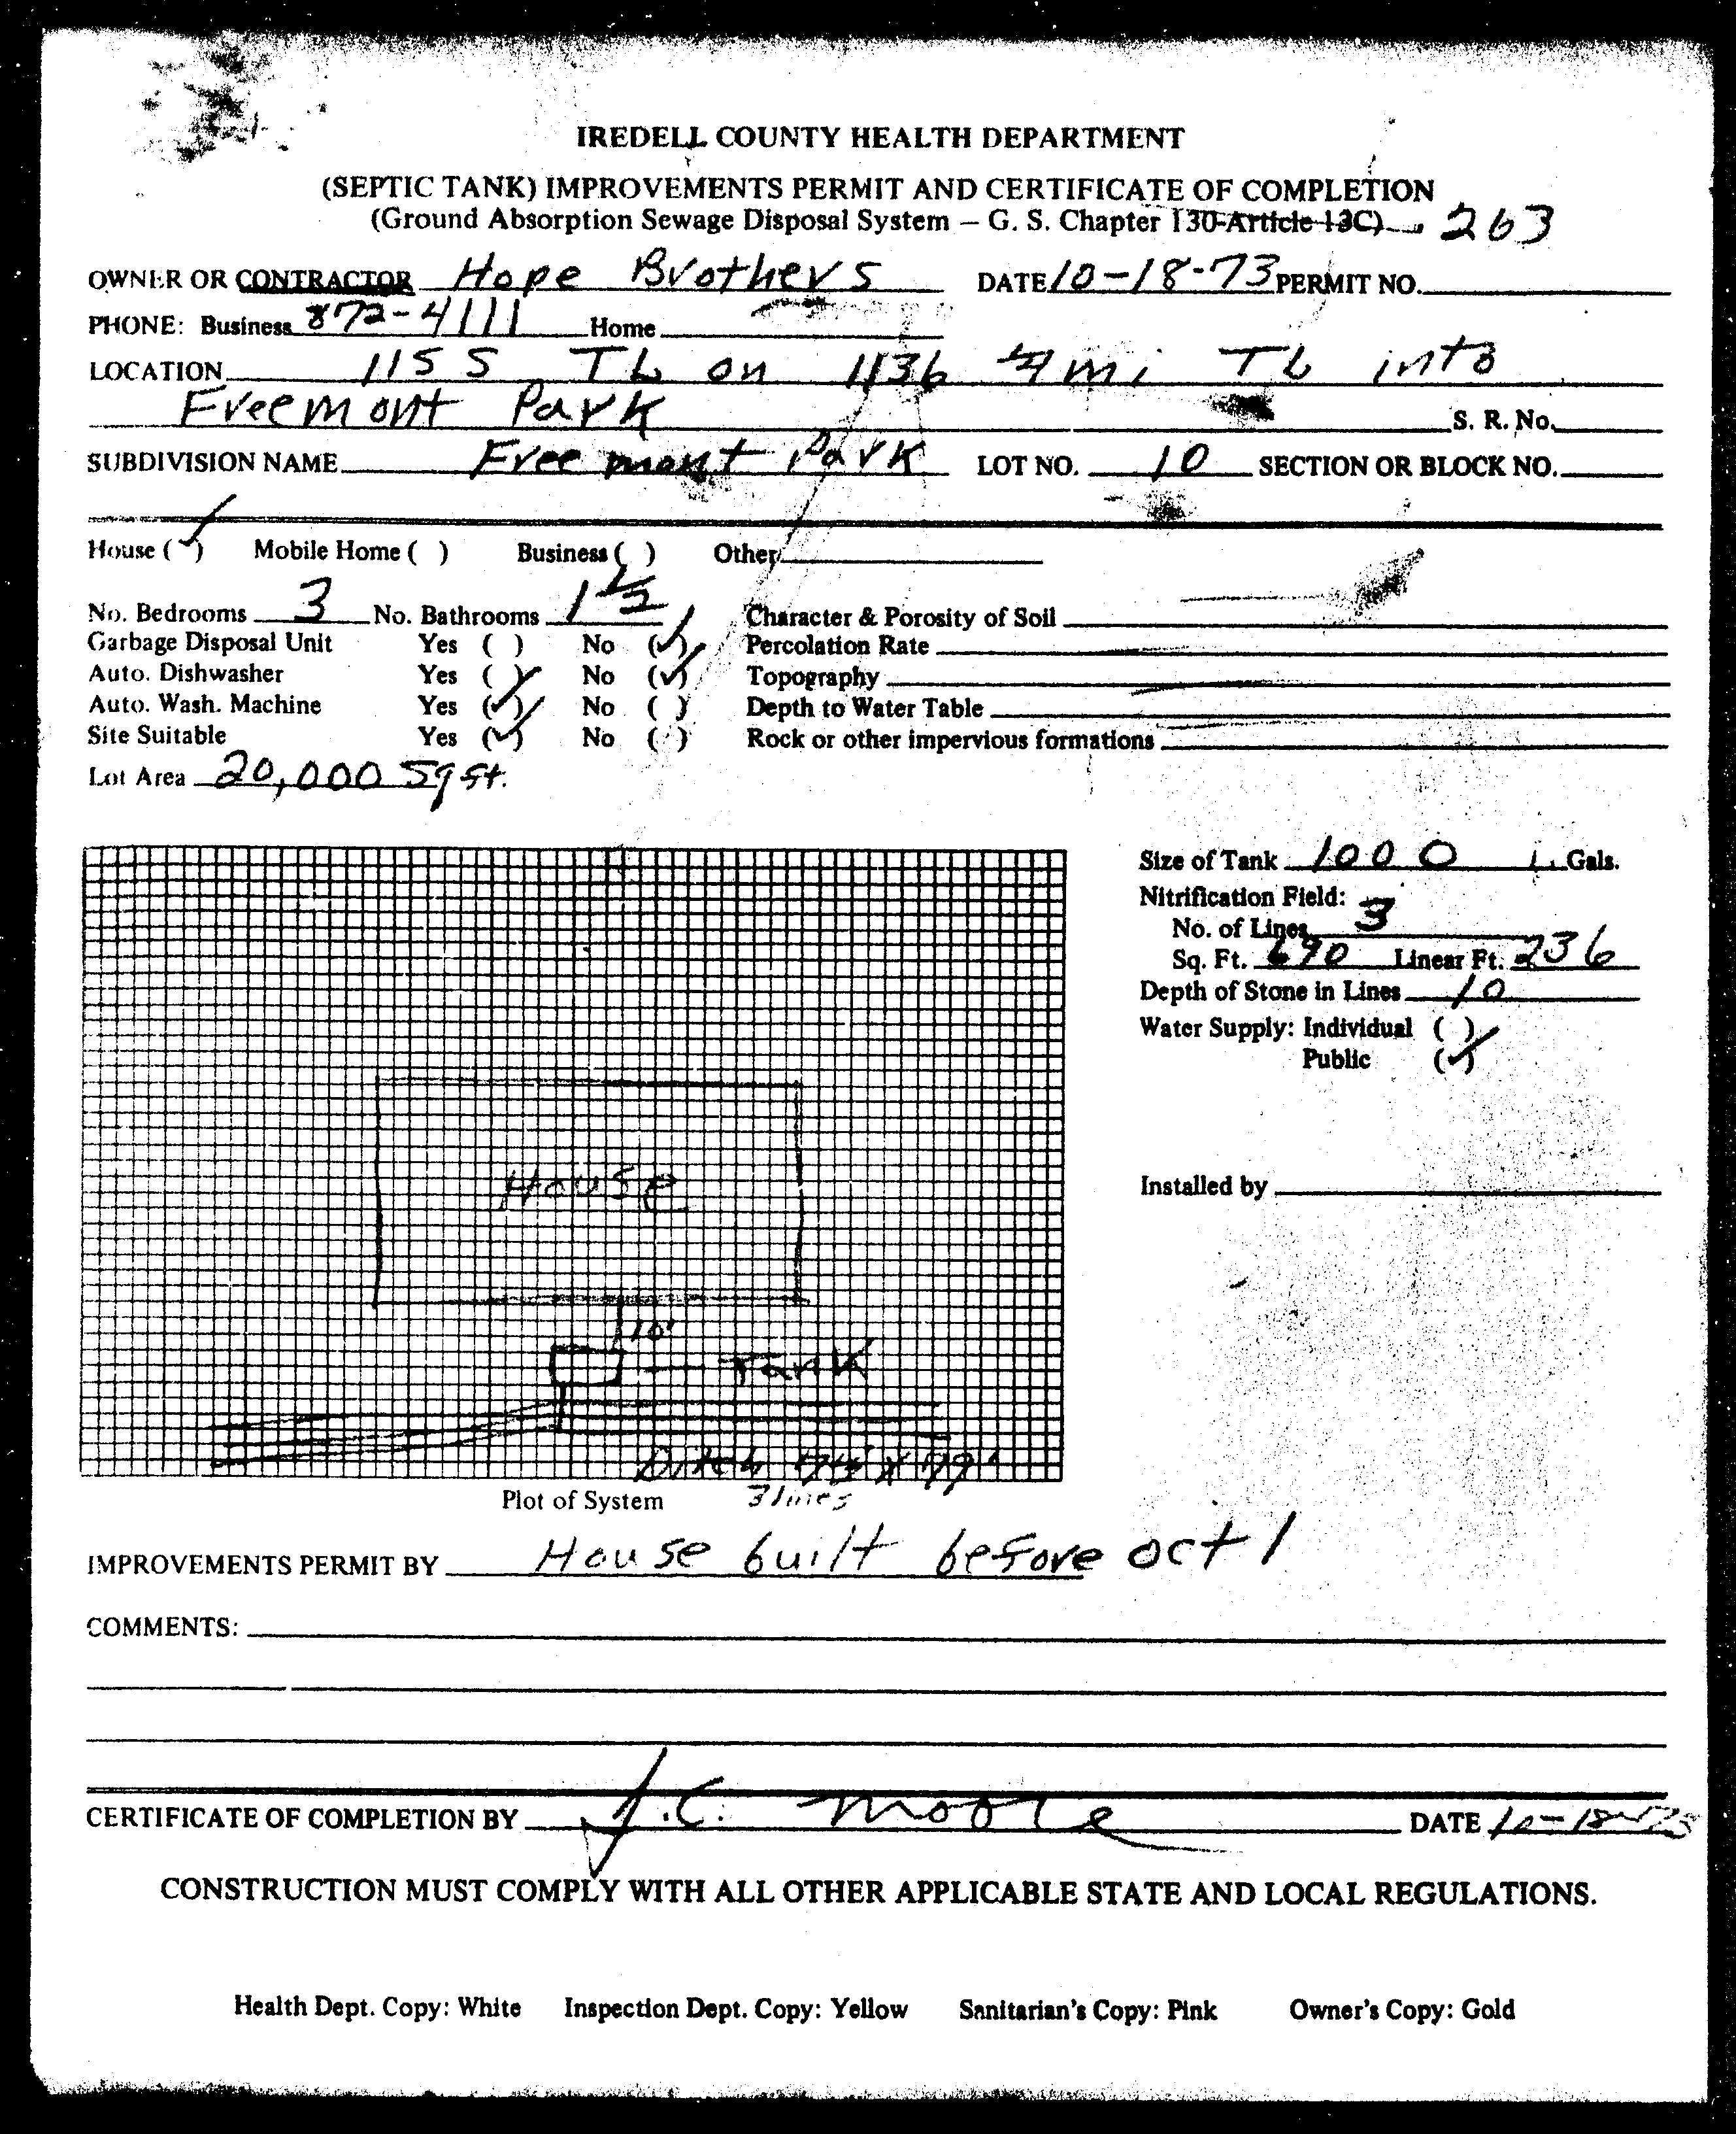 IREDELL COUNTY HEALTH DEPARTMENT
(SEPTIC TANK) IMPROVEMENTS PERMIT AND CERTIFICATE OF COMPLETION
(Ground Absorption Sewage Disposal System – G. S. Chapter 130-Article 13C) 263
OWNER OR CONTRACTOR Hope Brothers DATE 10-18-73 PERMIT NO.
PHONE: Business 872-4111 Home
LOCATION 1155 TL on 1136 mi TL into
Freemont Park S. R. No.
SUBDIVISION NAME Freemont Park LOT NO. 10 SECTION OR BLOCK NO.
House (✓) Mobile Home ( ) Business ( ) Other
No. Bedrooms 3 No. Bathrooms 1 1/2 Character & Porosity of Soil
Garbage Disposal Unit Yes ( ) No (✓) Percolation Rate
Auto. Dishwasher Yes ( ) No (✓) Topography
Auto. Wash. Machine Yes (✓) No ( ) Depth to Water Table
Site Suitable Yes (✓) No ( ) Rock or other impervious formations
Lot Area 20,000 Sq ft.
Size of Tank 1000 Gals.
Nitrification Field:
No. of Lines 3
Sq. Ft. 690 Linear Ft. 236
Depth of Stone in Lines 10
Water Supply: Individual ( )
Public (✓)
House
Installed by
10'
Tank
Ditch
Plot of System 3 lines
IMPROVEMENTS PERMIT BY House built before oct 1
COMMENTS:
CERTIFICATE OF COMPLETION BY J.C. Moore DATE 10-18-73
CONSTRUCTION MUST COMPLY WITH ALL OTHER APPLICABLE STATE AND LOCAL REGULATIONS.
Health Dept. Copy: White Inspection Dept. Copy: Yellow Sanitarian's Copy: Pink Owner's Copy: Gold